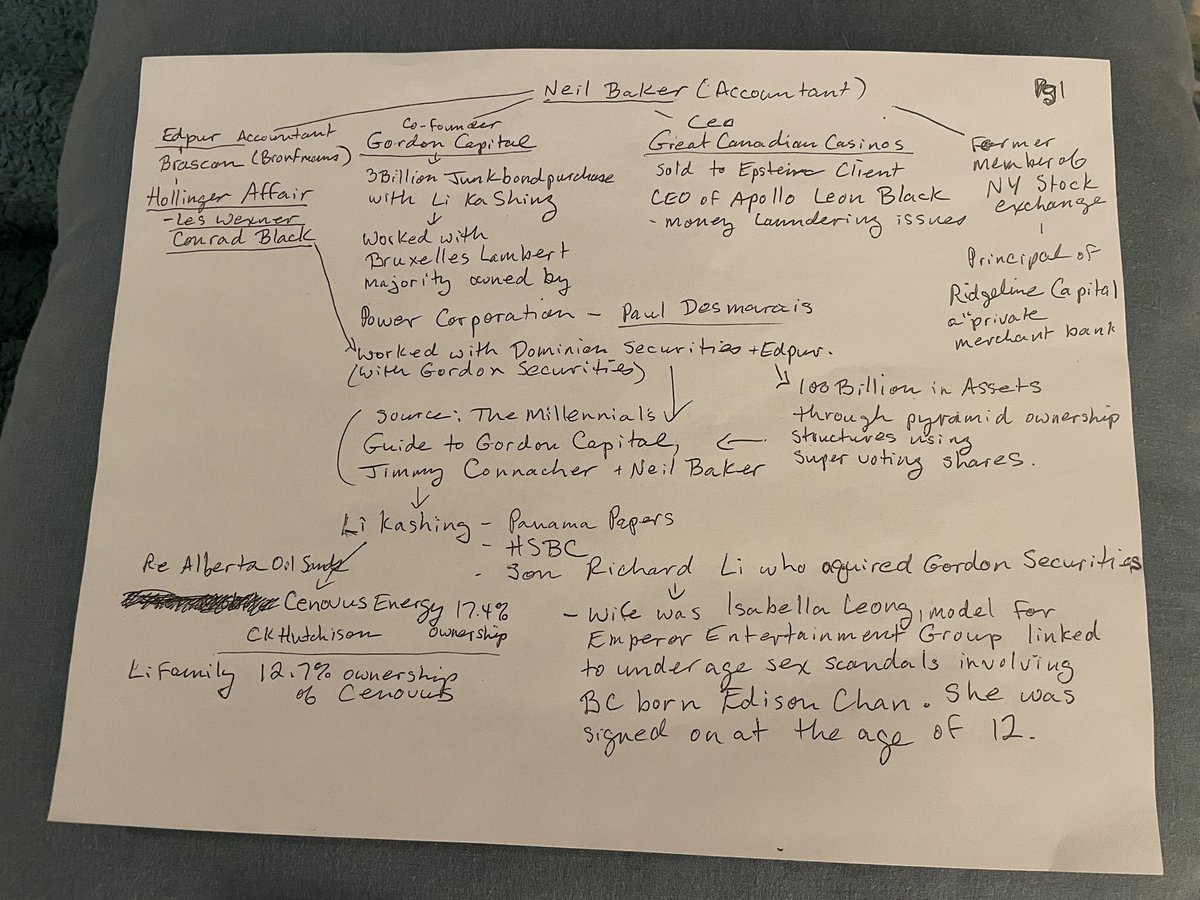 Neil Baker (Accountant)
Pg1
Edpur Accountant
Brascan (Bronfmans)
Hollinger Affair
- Les Wexner
Conrad Black
Co-founder
Gordon Capital
3Billion Junkbond purchase
with Li KaShing
Worked with
Bruxelles Lambert
majority owned by
Power Corporation - Paul Desmarais
Worked with Dominion Securities + Edpur.
(with Gordon Securities)
Ceo
Great Canadian Casinos
sold to Epstein Client
CEO of Apollo Leon Black
- money laundering issues
Former
member of
NY Stock
exchange
Principal of
Ridgeline Capital
a "private
merchant bank
100 Billion in Assets
through pyramid ownership
structures using
super voting shares.
(Source: The Millennial's
Guide to Gordon Capital,
Jimmy Connacher + Neil Baker
Li Kashing - Panama Papers
- HSBC
- Son Richard Li who aquired Gordon Securities
Re Alberta Oil Sands
Cenovus Energy 17.4%
CK Hutchison ownership
Li Family 12.7% ownership
of Cenovus
- Wife was Isabella Leong, model for
Emperor Entertainment Group linked
to underage sex scandals involving
BC born Edison Chan. She was
signed on at the age of 12.